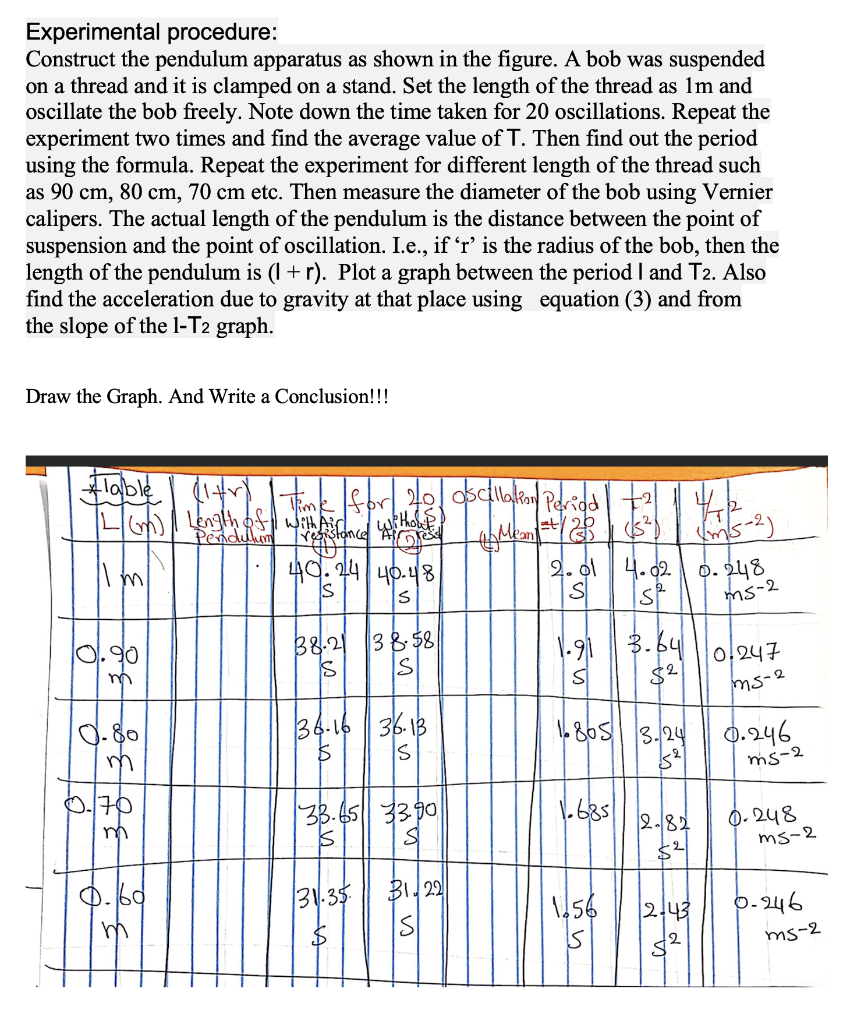 Experimental procedure:
Construct the pendulum apparatus as shown in the figure. A bob was suspended
on a thread and it is clamped on a stand. Set the length of the thread as 1m and
oscillate the bob freely. Note down the time taken for 20 oscillations. Repeat the
experiment two times and find the average value of T. Then find out the period
using the formula. Repeat the experiment for different length of the thread such
as 90 cm, 80 cm, 70 cm etc. Then measure the diameter of the bob using Vernier
calipers. The actual length of the pendulum is the distance between the point of
suspension and the point of oscillation. I.e., if ‘r’ is the radius of the bob, then the
length of the pendulum is (l + r). Plot a graph between the period l and T2. Also
find the acceleration due to gravity at that place using equation (3) and from
the slope of the l-T2 graph.
Draw the Graph. And Write a Conclusion!!!
Table (l+r) Time for 20 oscillation Period T² L/T2
L (m) Length of Pendulum With Air resistance (1) without Air resist (2) (S) (t) Mean =t/20 (S) (s²) (ms-2)
1 m 40.24 S 40.48 S 2.01 S 4.02 s² 0.248 ms-2
0.90 m 38.21 S 38.58 S 1.91 S 3.64 s² 0.247 ms-2
0.80 m 36.16 S 36.13 S 1.805 3.24 s² 0.246 ms-2
0.70 m 33.65 S 33.90 S 1.685 2.82 s² 0.248 ms-2
0.60 m 31.35 S 31.22 S 1.56 S 2.43 s² 0.246 ms-2